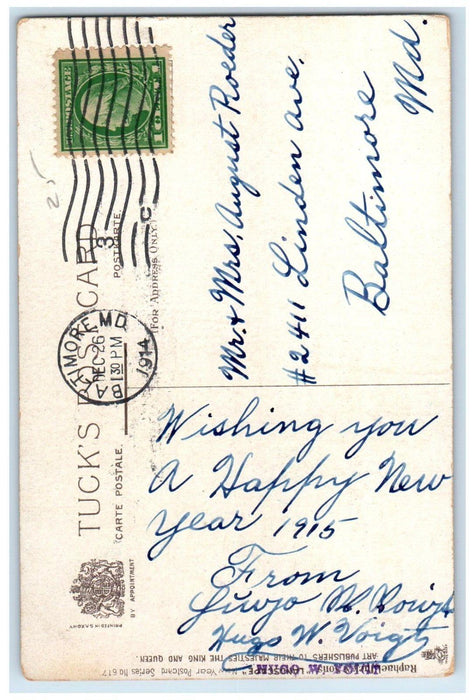 TUCK'S POST CARD
CARTE POSTALE.
POSTKARTE.
(FOR ADDRESS ONLY.)
BY APPOINTMENT
PRINTED IN SAXONY.
POSTAGE
1 CENT 1
BALTIMORE, MD.
DEC 26
130 PM
1914
3
C
25
Mr. & Mrs. August Roeder
#2411 Linden ave.
Baltimore
Md.
Wishing you
A Happy New
Year 1915
From
Hugo W. Voigt
HUGO W. VOIGT
Raphael
ART PUBLISHERS TO THEIR MAJESTIES THE KING AND QUEEN.
New Year Postcard Series No 617